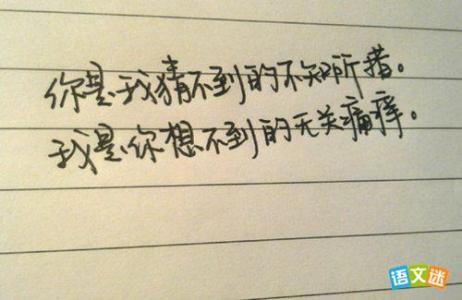 你是我猜不到的不知所措。
我是你想不到的无关痛痒。
语文迷